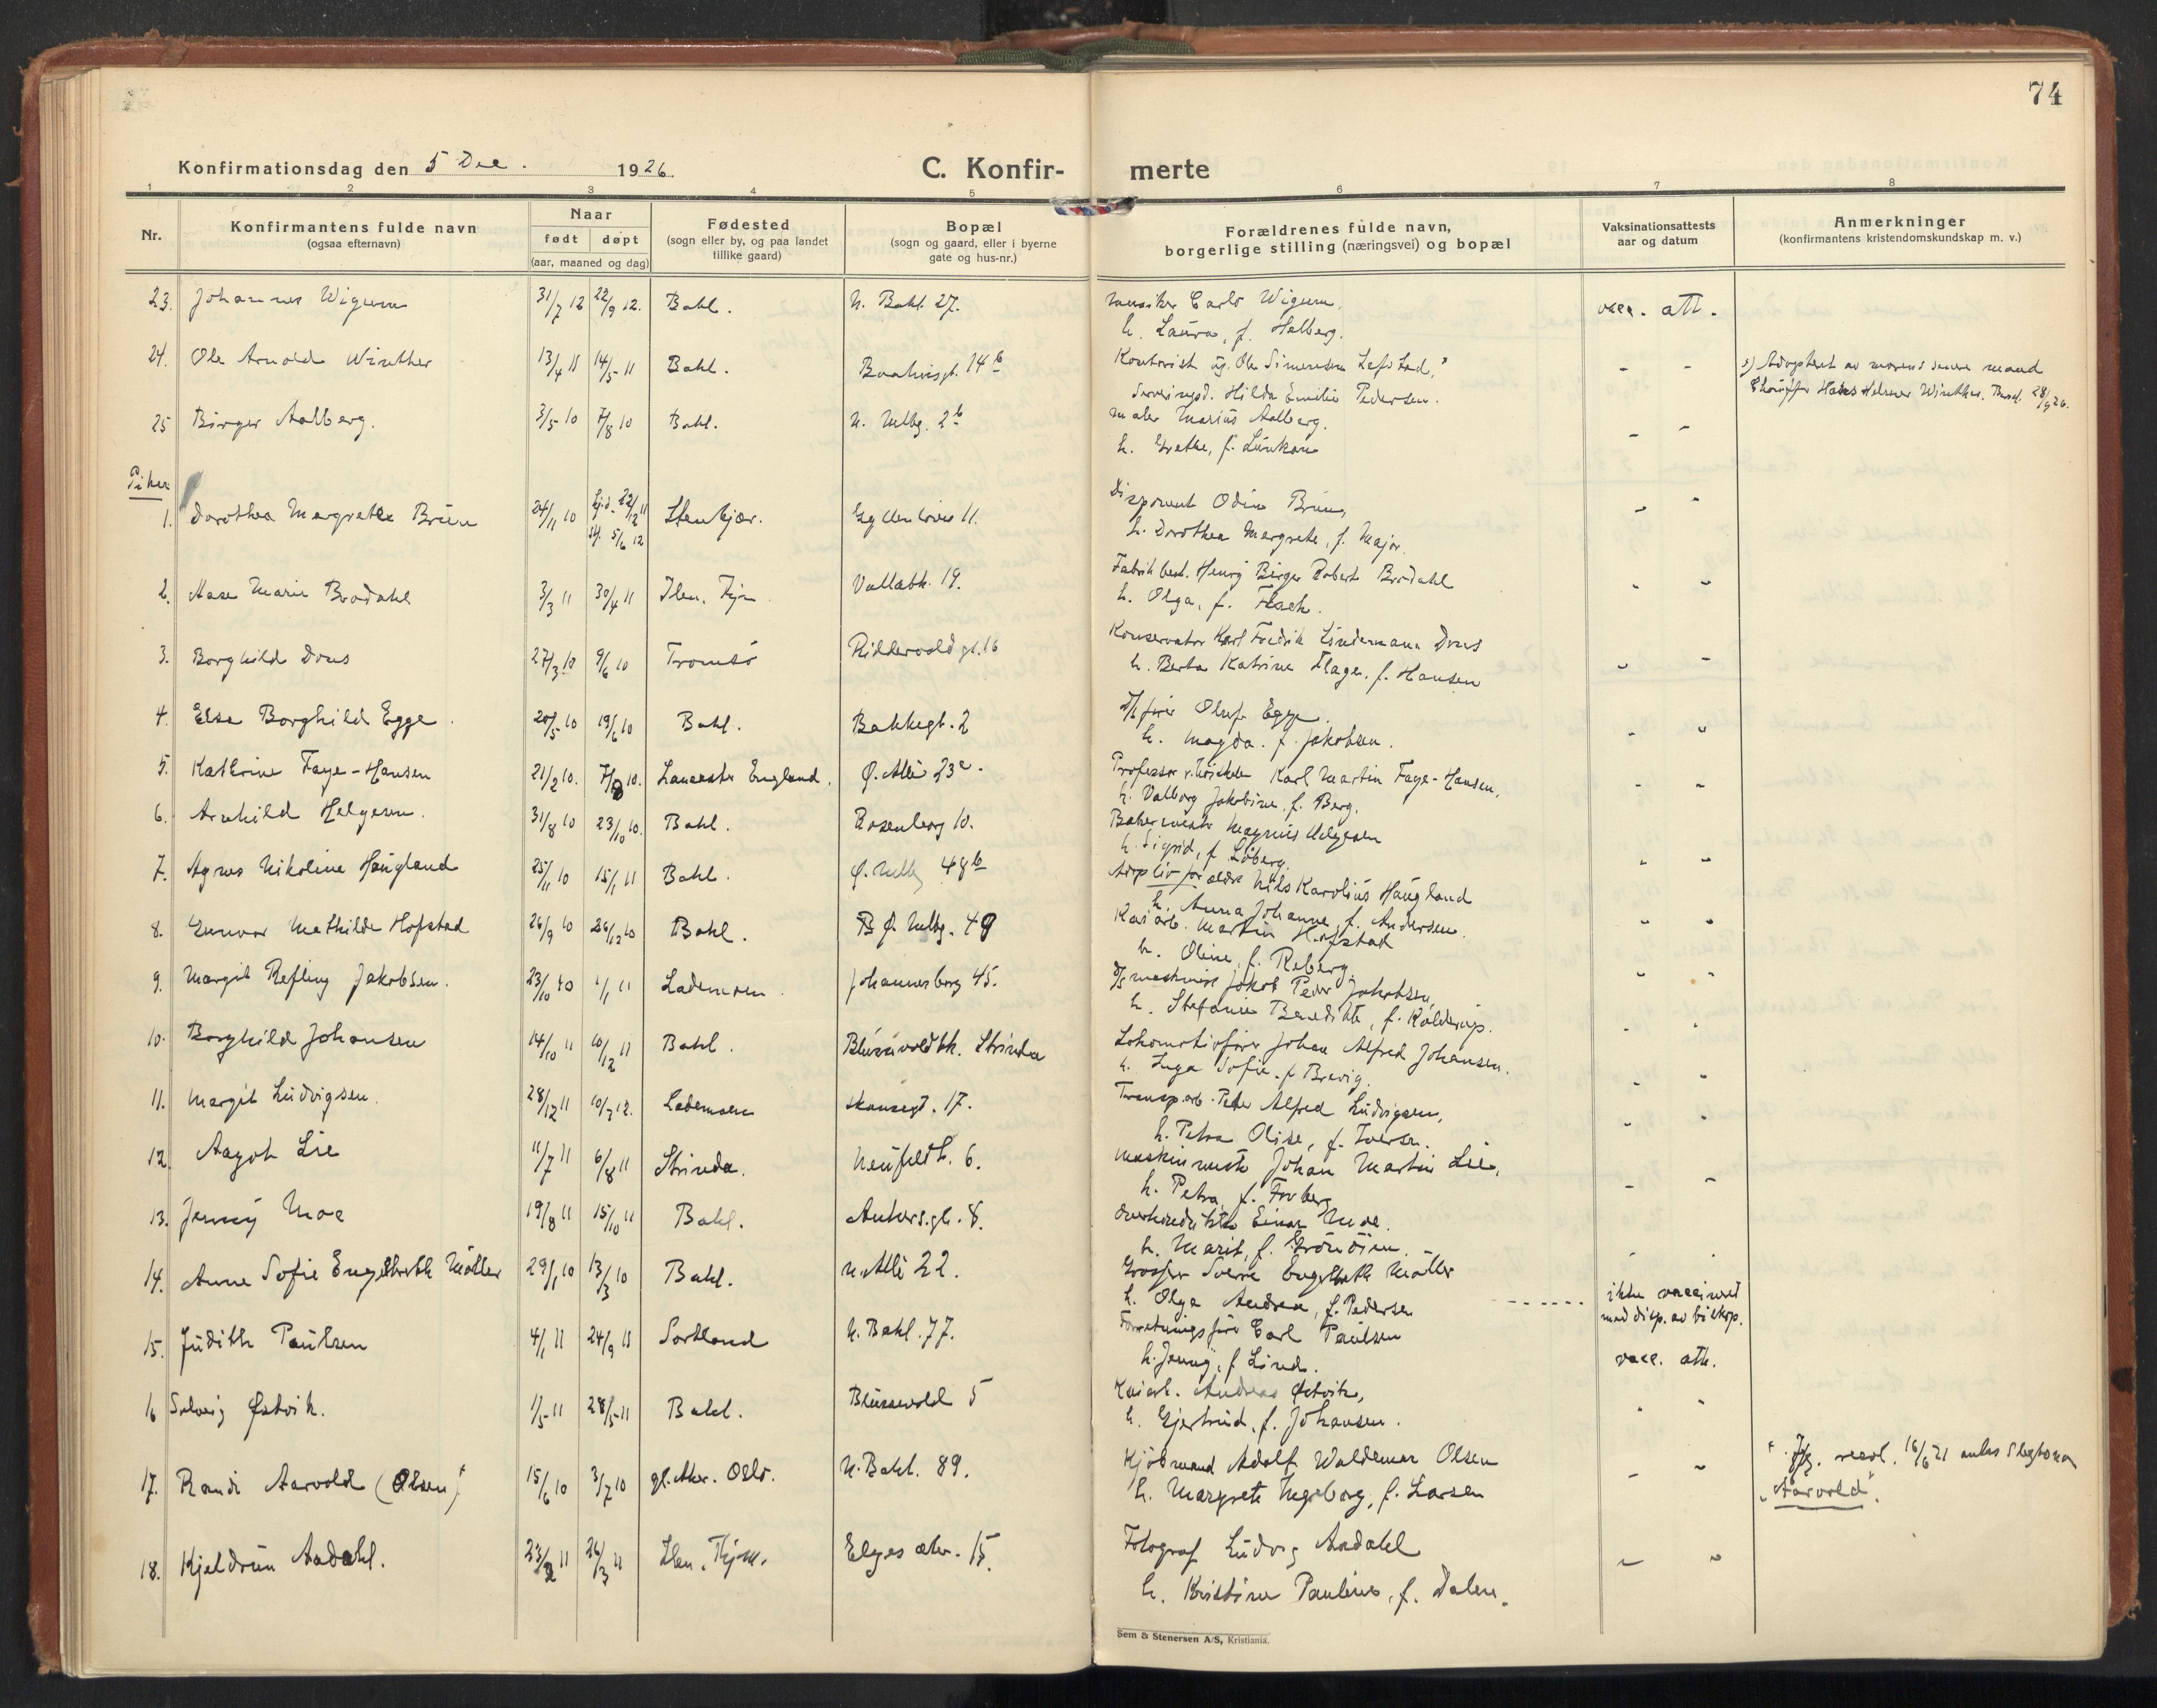 74
Konfirmationsdag den 5 Dec. 1926.
C. Konfir- merte
1 2 3 4 5 6 7 8
Nr.
Konfirmantens fulde navn
(ogsaa efternavn)
Naar
født døpt
(aar, maaned og dag)
Fødested
(sogn eller by, og paa landet
tillike gaard)
Bopæl
(sogn og gaard, eller i byerne
gate og hus-nr.)
Forældrenes fulde navn,
borgerlige stilling (næringsvei) og bopæl
Vaksinationsattests
aar og datum
Anmerkninger
(konfirmantens kristendomskundskap m. v.)
23. Johannes Wigum 31/7 12 22/9 12. Bakl. N. Bakl. 27. Carlo Wigum, vacc. att.
h. Laura, f. Halberg.
24. Ole Arnold Winther 13/4 11 14/5 11 Bakl. 14b Kontorist ug. Ole Simonsen - - x) Adoptert av morens senere mand
Hilda Emilie Pedersen. Chauffør Winther. 28/9 26.
25 Birger Aalberg. 3/5 10 7/8 10 Bakl. N. Mlbg. 2b maler Marius Aalberg. - -
h. Grethe, f.
Piker
1. Dorothea Margrethe Brun 24/11 10 hj.d. 22/12 11 Stenkjær. Gyldenløves 11. Disponent Odin Brun, - -
st. 5/6 12 h. Dorothea Margrethe, f. Major.
2. Aase Marie Brodahl 3/3 11 30/4 11 Ilen, Tjm Vollabk. 19. Fabrikbest. Henry Birger Robert Brodahl - -
h. Olga, f.
3. Borghild Dons 27/3 10 9/6 10 Tromsö Riddervoldgt. 16 Konservator Karl Fredrik Lindemann Dons - -
h. Berta Katrine Flage, f. Hansen
4. Else Borghild Egge. 20/5 10 19/6 10 Bakl. Bakkegt. 2 Oluf Egge. - -
h. Magda, f. Jakobsen.
5. Kathrine Faye-Hansen 21/2 10. 7/8 10. Lancaster England. Ø. Allé 23a. Professor v. Høiskolen Karl Martin Faye-Hansen, - -
h. Valborg Jakobine, f. Berg.
6. Arnhild Helgesen. 31/8 10 23/10 10. Bakl. Rosenborg 10. Bakermester Magnus Helgesen - -
h. Sigrid, f. Löberg.
7. Agnes Nikoline Haugland 25/11 10 15/1 11 Bakl. Ø. Mlbg 48b Adoptivforældre Nils Karolius Haugland - -
h. Anna Johanne, f. Andersen.
8. Gunvor Mathilde Hofstad 26/9 10 26/12 10 Bakl. Ø. Mlbg. 49 Kaiarb. Martin Hofstad - -
h. Oline, f. Roberg.
9. Margit Refling Jakobsen. 23/10 10 1/1 11 Lademoen. Johannesborg 45. Jakob Peder Jakobsen, - -
h. Stefanie Benedikte, f. Kolderup.
10. Borghild Johansen 14/10 11 10/12 11 Bakl. Blussuvoldbk. Strinda Lokomotivfører Johan Alfred Johansen. - -
h. Inga Sofie, f. Brevig.
11. Margit Ludvigsen. 28/12 11 10/3 12. Lademoen 17. Transp.arb. Peter Alfred Ludvigsen, - -
h. Petra Olise, f. Iversen.
12. Aagot Lie 11/7 11 6/8 11 Strinda. Neufeldt. 6. Maskinmester Johan Martin Lie, - -
h. Petra, f. Forberg
13. Jenny Moe 19/8 11 15/10 11 Bakl. Ankersgt. 8. Overkonduktör Einar Moe. - -
h. Marit, f.
14. Anne Sofie Engelbreth Möller 29/1 10 13/3 10 Bakl. N. Allé 22. Grosser Sverre Engelbreth Möller ikke vaccinert
h. Olga Andrea, f. Pedersen med disp. av biskop.
15. Judith Paulsen 4/1 11 24/9 11 Sortland N. Bakl. 77. Forretningsfører Carl Paulsen vacc. att.
h. Jenny, f. Lind.
16 Solveig Østvik. 1/5 11 28/5 11 Bakl. Blussuvold 5 Kaiarb. Andreas Østvik, - -
h. Gjertrud, f. Johansen.
17. Randi Aarvold (Olsen)x 15/6 10 3/7 10 gl. Aker. Oslo. N. Bakl. 89. Kjöbmand Adolf Waldemar Olsen - - x Jfg. resol. 16/6 21 antas slegtsnavn
h. Margrete Ingeborg, f. Larsen "Aarvold".
18. Kjeldrun Aadahl. 23/2 11 26/3 11 Ilen, Tjem. Elges atv. 15. Fotograf Ludvig Aadahl - -
h. Kristine Pauline, f. Dalen.
Sem & Stenersen A/S, Kristiania.